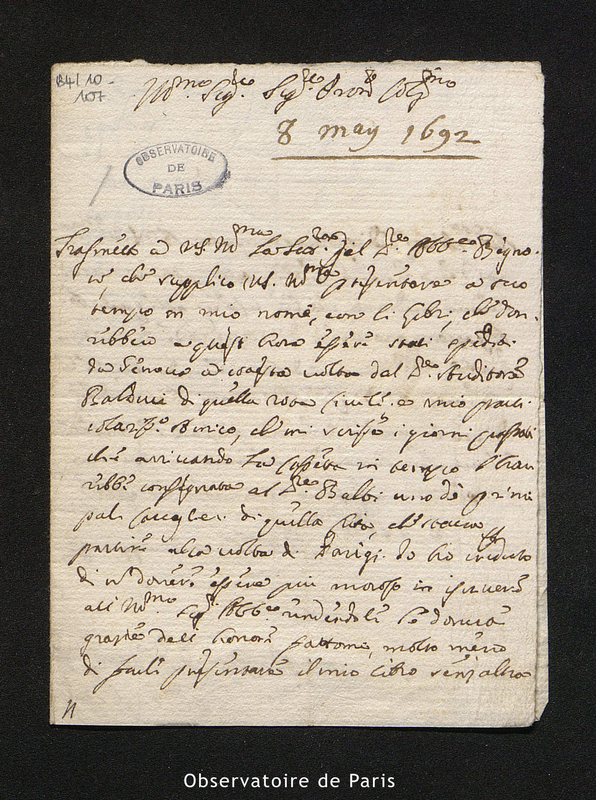 B4/10-
107
Ill.mo Sig.re Sig.re Pron. Col.mo
8 may 1692
OBSERVATOIRE
DE
PARIS
Trasmetto a VS. Ill.ma la del S.re Abb.e Bigno-
che supplico VS. Ill.ma presentare a suo
tempo in mio nome, con li libri, che do-
a quest hora essere stati spediti
da Genova a cotesta volta dal S.re Auditore
Balducci di quella rota Civile, e mio parti-
colar.mo Amico, che mi scrisse i giorni passati
che arrivando la in tempo l'hav-
rebbe consegnata al S.re Balbi uno de prin-
pali di quella Città, che stava
partire alla volta di Parigi. Io ho creduto
di non dovere essere più moroso in scrivere
all Ill.mo Sig. Abb.e rendendoli le dovute
grazie dell honore fattomi, molto meno
di farli presentare il mio libro senz'altro
Observatoire de Paris